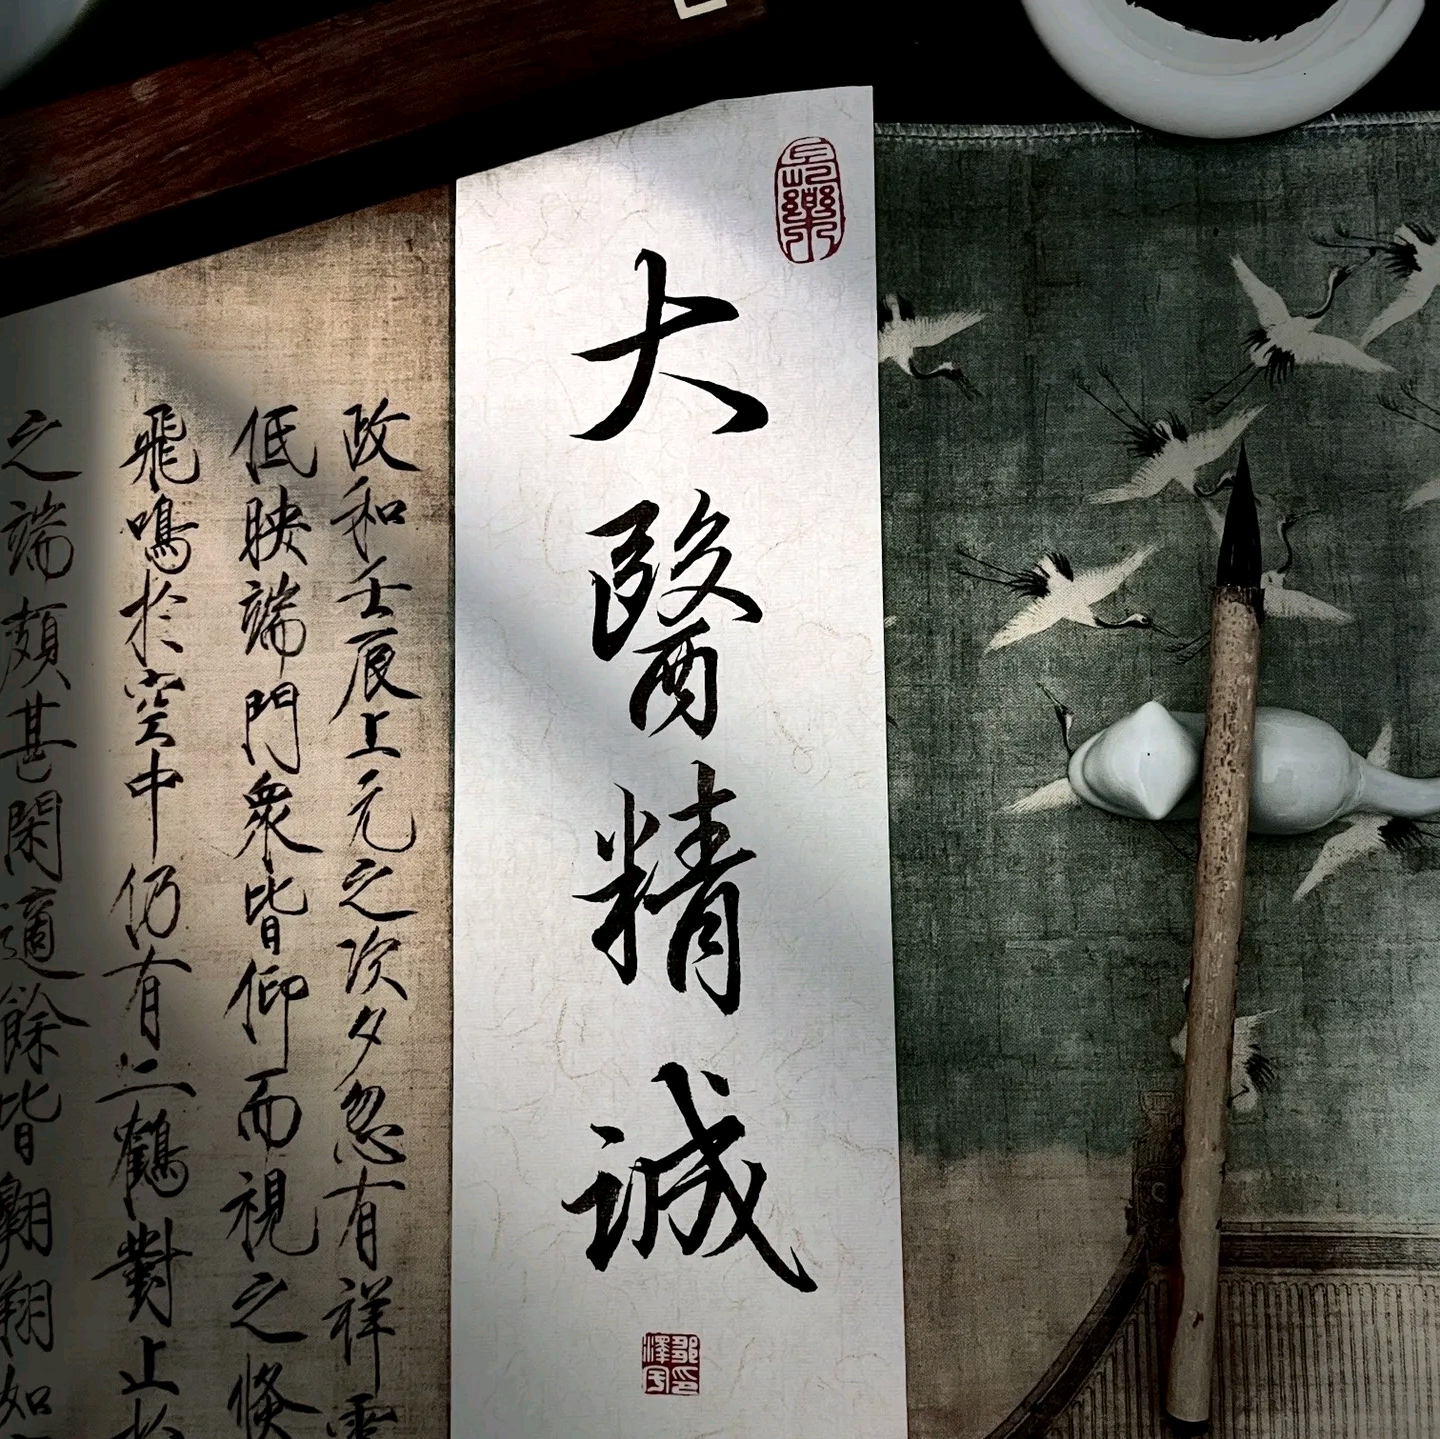 大醫精誠
政和壬辰上元之次夕忽有祥雲
低映端門眾皆仰而視之倏
飛鳴於空中仍有二鶴對止於
之端頗甚閑適餘皆翱翔如